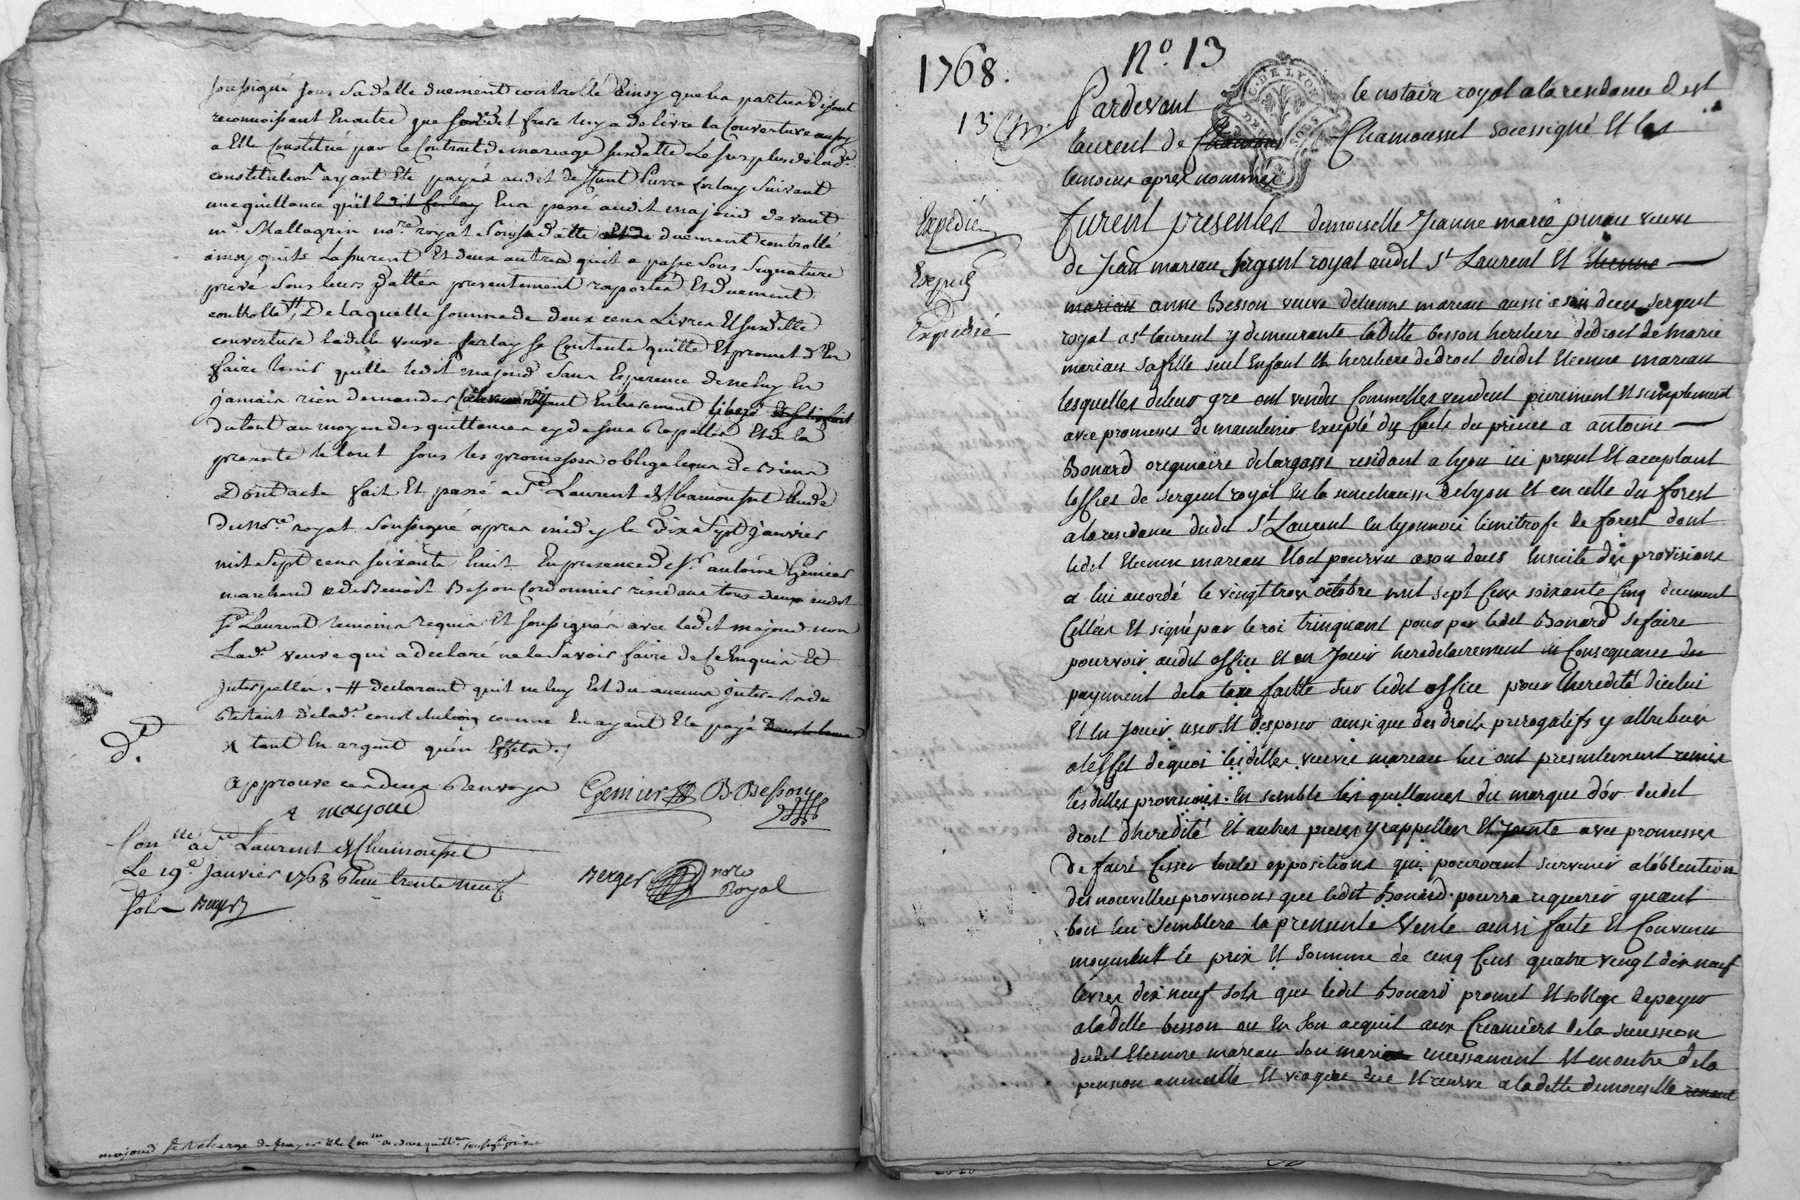 soussigné sous sa datte duement controllé Ainsy que les parties disent
reconnoissant En outre que ledit frere luy a delivré la Couverture aussy
a Elle Constituée par le Contrat de mariage susdatté Le surplus de lad.
constitution ayant Eté payée audit deffunt Pierre ferlay Suivant
une quittance qu'il ledit ferlay En a passé audit majoud devant
me Mallagrin nore royal sous sa datte duement controllé
ainsy quils Lassurent Et deux autres quil a passé sous Signature
privé sous leurs dattes presentement raportées Et duement
controllé, De laquelle somme de deux cens Livres Et susditte
couverture ladelle veuve ferlay se Contente quitte Et promet d'En
faire tenir quitte ledit majoud sans Esperance de ne luy En
jamais rien demander Entierement libéré
du tout au moyen des quittances cy dessus rappellées Et de la
presente le tout sous les promesses obligations de Biens
Dont acte fait Et passé a St Laurent de Chamousset Etude
du nore royal soussigné apres midy le dix sept janvier
mil sept cens soixante huit En presence de sr antoine Genier
marchand et de Benoist Besson Cordonnier residants tous deux audit
St Laurent temoins requis Et soussignés avec ledit majoud non
Lade veuve qui a declaré ne le scavoir faire de ce Enquise Et
Interpellée. # declarant quil ne luy Est du aucuns Interets du
Restant de lade constitution comme En ayant Eté payé
tant En argent qu'en Effets./
Dt
Approuve ces deux Renvoys
majoud Genier B Besson
Conlle a St Laurent de Chamousset
Le 19e Janvier 1768 Reçu trente neuf
sols Berger
Berger nore Royal
1768.
No 13
13
Pardevant le notaire royal a la residence de st
laurent de Chamousset soussigné Et les
temoins apres nommés
Expédié
Expédié
Expedié
Furent presentes demoiselle Jeanne marie pineau veuve
de Jean mareau sergent royal audit St Laurent Et Etienne
mariau anne Besson veuve detienne mareau aussi a son deces sergent
royal a st laurent y demeurante ladille besson heritiere de droit de marie
mariau sa fille seul Enfant Et heritiere de droit dudit Etienne mareau
lesquelles de leur gre ont vendu Comme Elles vendent purement Et simplement
avec promesses de maintenir Excepté du faite du prince a antoine
Bonard originaire delargasse residant a lyon ici present Et aceptant
loffice de sergent royal En la senechaussée de lyon Et en celle du forest
a la residence dudit St Laurent En lyonnois limitrofe de forest dont
ledit Etienne mareau Etoit pourvu a son deces Ensuite des provisions
a lui acordé le vingt trois octobre mil sept Cens soixante Cinq duement
Cellées Et signé par le roi trinquant pour par ledit Bonard se faire
pourvoir audit office Et en Jouir hereditairement En Consequance du
payement de la taxe faitte sur ledit office pour lheredité dicelui
Et En Jouir user Et disposer ainsi que des droits prerogatifs y attribués
a leffet de quoi lesdittes veuves mareau lui ont presentement remis
lesdittes provisions. En semble les quittances du marque d'or dudit
droit d'heredité Et autres pieces y rappellées Et Jointe avec promesses
de faire Cesser toutes oppositions qui pourroient survenir a lobtention
des nouvelles provisions que ledit Bonard pourra requerir quant
bon lui semblera la presente vente ainsi faite Et Convenue
moyennant le prix Et somme de cinq Cens quatre vingt dix neuf
livres dix neuf sols que ledit Bonard promet Et soblige de payer
a ladille besson ou En son acquit aux Creanciers de la sucession
dudit Etienne mareau son mari incessament Et en outre de la
pension annuelle Et viagere due Et reservé a ladille demoiselle